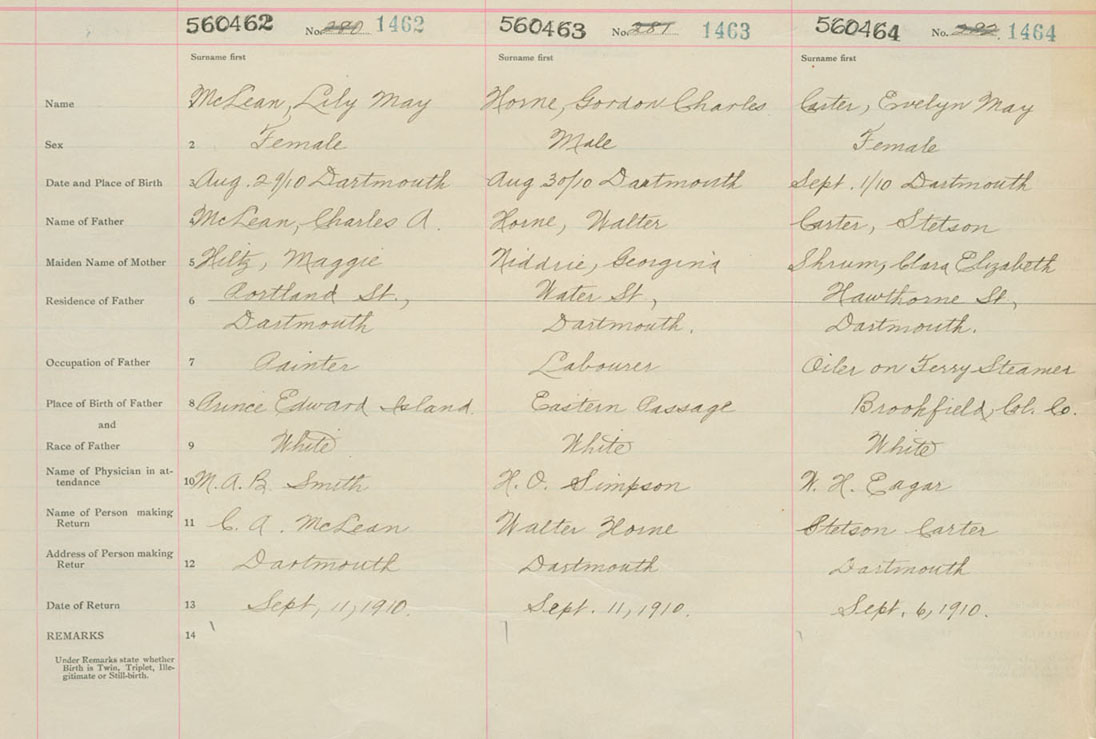 560462 No. 280 1462 560463 No. 281 1463 560464 No. 282 1464
Surname first Surname first Surname first
Name McLean, Lily May Horne, Gordon Charles Carter, Evelyn May
Sex 2 Female Male Female
Date and Place of Birth 3 Aug. 29/10 Dartmouth Aug 30/10 Dartmouth Sept. 1/10 Dartmouth
Name of Father 4 McLean, Charles A. Horne, Walter Carter, Stetson
Maiden Name of Mother 5 Hiltz, Maggie Niddrie, Georgina Shrum, Clara Elizabeth
Residence of Father 6 Portland St., Water St., Hawthorne St,
Dartmouth Dartmouth. Dartmouth.
Occupation of Father 7 Painter Labourer Oiler on Ferry Steamer
Place of Birth of Father 8 Prince Edward Island Eastern Passage Brookfield, Col. Co.
and
Race of Father 9 White White White
Name of Physician in at-
tendance 10 M. A. B. Smith H. O. Simpson W. H. Eagar
Name of Person making
Return 11 C. A. McLean Walter Horne Stetson Carter
Address of Person making
Retur 12 Dartmouth Dartmouth Dartmouth
Date of Return 13 Sept, 11, 1910. Sept. 11, 1910. Sept. 6, 1910.
REMARKS 14
Under Remarks state whether
Birth is Twin, Triplet, Ille-
gitimate or Still-birth.